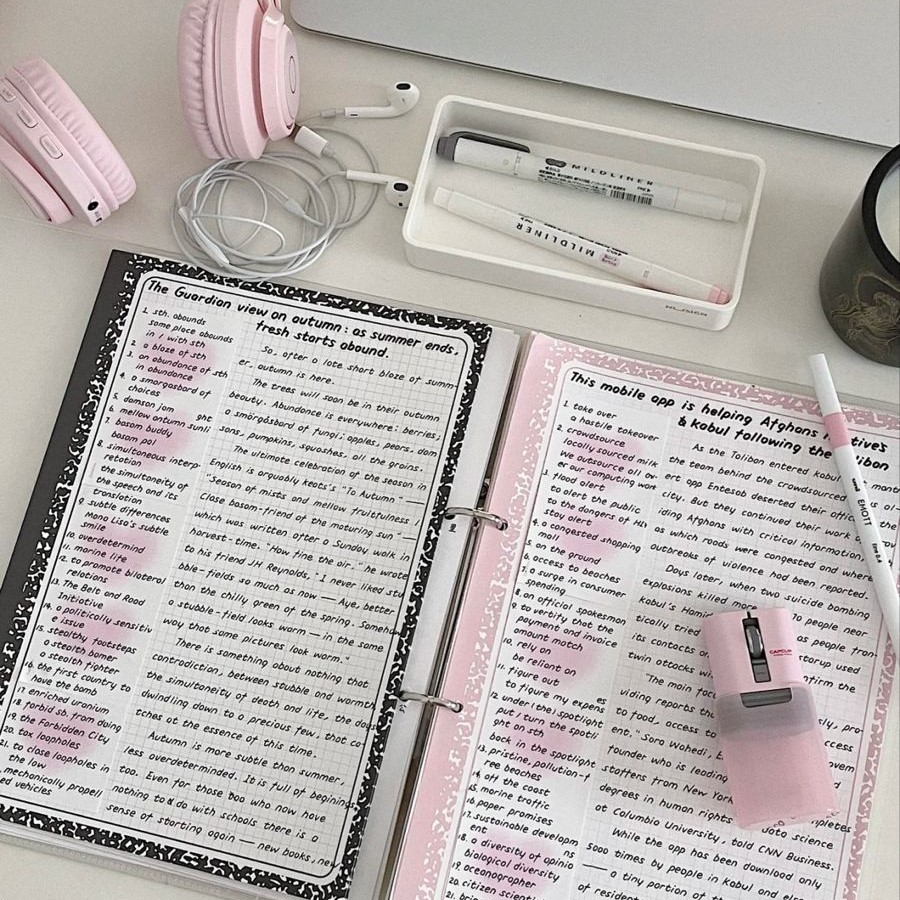 MILDLINER
MILDLINER
The Guardian view on autumn: as summer ends,
fresh starts abound.
1. sth. abounds
some place abounds
in / with sth
2. a blaze of sth
3. an abundance of sth
in abundance
4. a smorgasbord of
choices
5. damson jam
6. mellow autumn sunli
ght
7. bosom buddy
bosom pal
8. simultaneous interp-
retation
the simultaneity of
the speech and its
translation
9. subtle differences
Mona Lisa's subtle
smile
10. overdetermind
11. marine life
12. to promote bilateral
relations
13. The Belt and Road
Initiative
14. a politically sensitiv
e issue
15. stealthy footsteps
a stealth bomer
a stealth fighter
16. the first country to
have the bomb
17. enriched uranium
18. forbid sb. from doing
19. the Forbidden City
20. tax loopholes
21. to close loopholes in
the law
mechanically propell
ed vehicles
So, after a late short blaze of summ-
er, autumn is here.
The trees will soon be in their autumn
beauty. Abundance is everywhere: berries,
a smörgåsbord of fungi; apples, pears, dam
sons, pumpkins, squashes, all the grains.
The ultimate celebration of the season in
English is arguably keats's "To Autumn" —
"Season of mists and mellow fruitfulness /
Close bosom-friend of the maturing sun" —
which was written after a Sunday walk in
harvest-time. "How fine the air," he wrote
to his friend JH Reynolds, "I never liked stu
bble-fields so much as now — Aye, better
than the chilly green of the spring. Someho
a stubble-field looks warm — in the same
way that some pictures look warm."
There is something about nothing that
contradiction, between stubble and warmth,
the simultaneity of death and life, the days
dwindling down to a precious few, that ca-
tches at the essence of this time.
Autumn is more subtle than summer,
less overdetermined. It is full of beginings,
too. Even for those who now have
nothing to do with schools there is a
sense of starting again — new books, new
This mobile app is helping Afghans
& kabul following the
1. take over
a hostile takeover
2. crowdsource
locally sourced milk
We outsource all ou
er our computing wor
3. flood alert
to alert the public
to the dangers of
stay alert
4. a congested shopping
mall
5. on the ground
6. access to beaches
7. a surge in consumer
spending
8. an official spokesman
9. to vertify that the
payment and invoice
amount match
10. rely on
be reliant on
11. figure out
to figure my expens
12. under (the) spotlight
put / turn the spotli
ght on sth
back in the spotlight
13. pristine, pollution-f
ree beaches
14. off the coast
15. marine traffic
16. paper promises
17. sustainable developm
ent
18. a diversity of opinio
ns
biological diversity
19. oceanographer
20. citizen scientist
21.
As the Taliban entered
the team behind the crowdsourced
ert app Entesab deserted their
city. But they continued their work
iding Afghans with critical information,
as which roads were congested and where
outbreaks of violence had been reported.
Days later, when two suicide bombing
explosions killed
Kabul's Hamid
tically tried
its contacts
twin attacks
"The main
viding reports
to food, access to
ent," Sara Wahedi,
founder who is leading
staffers from New York
degrees in human rights
at Columbia University, told CNN Business.
While the app has been download only
5000 times by people in Kabul and
— a tiny portion of the
of residents
EMOTT